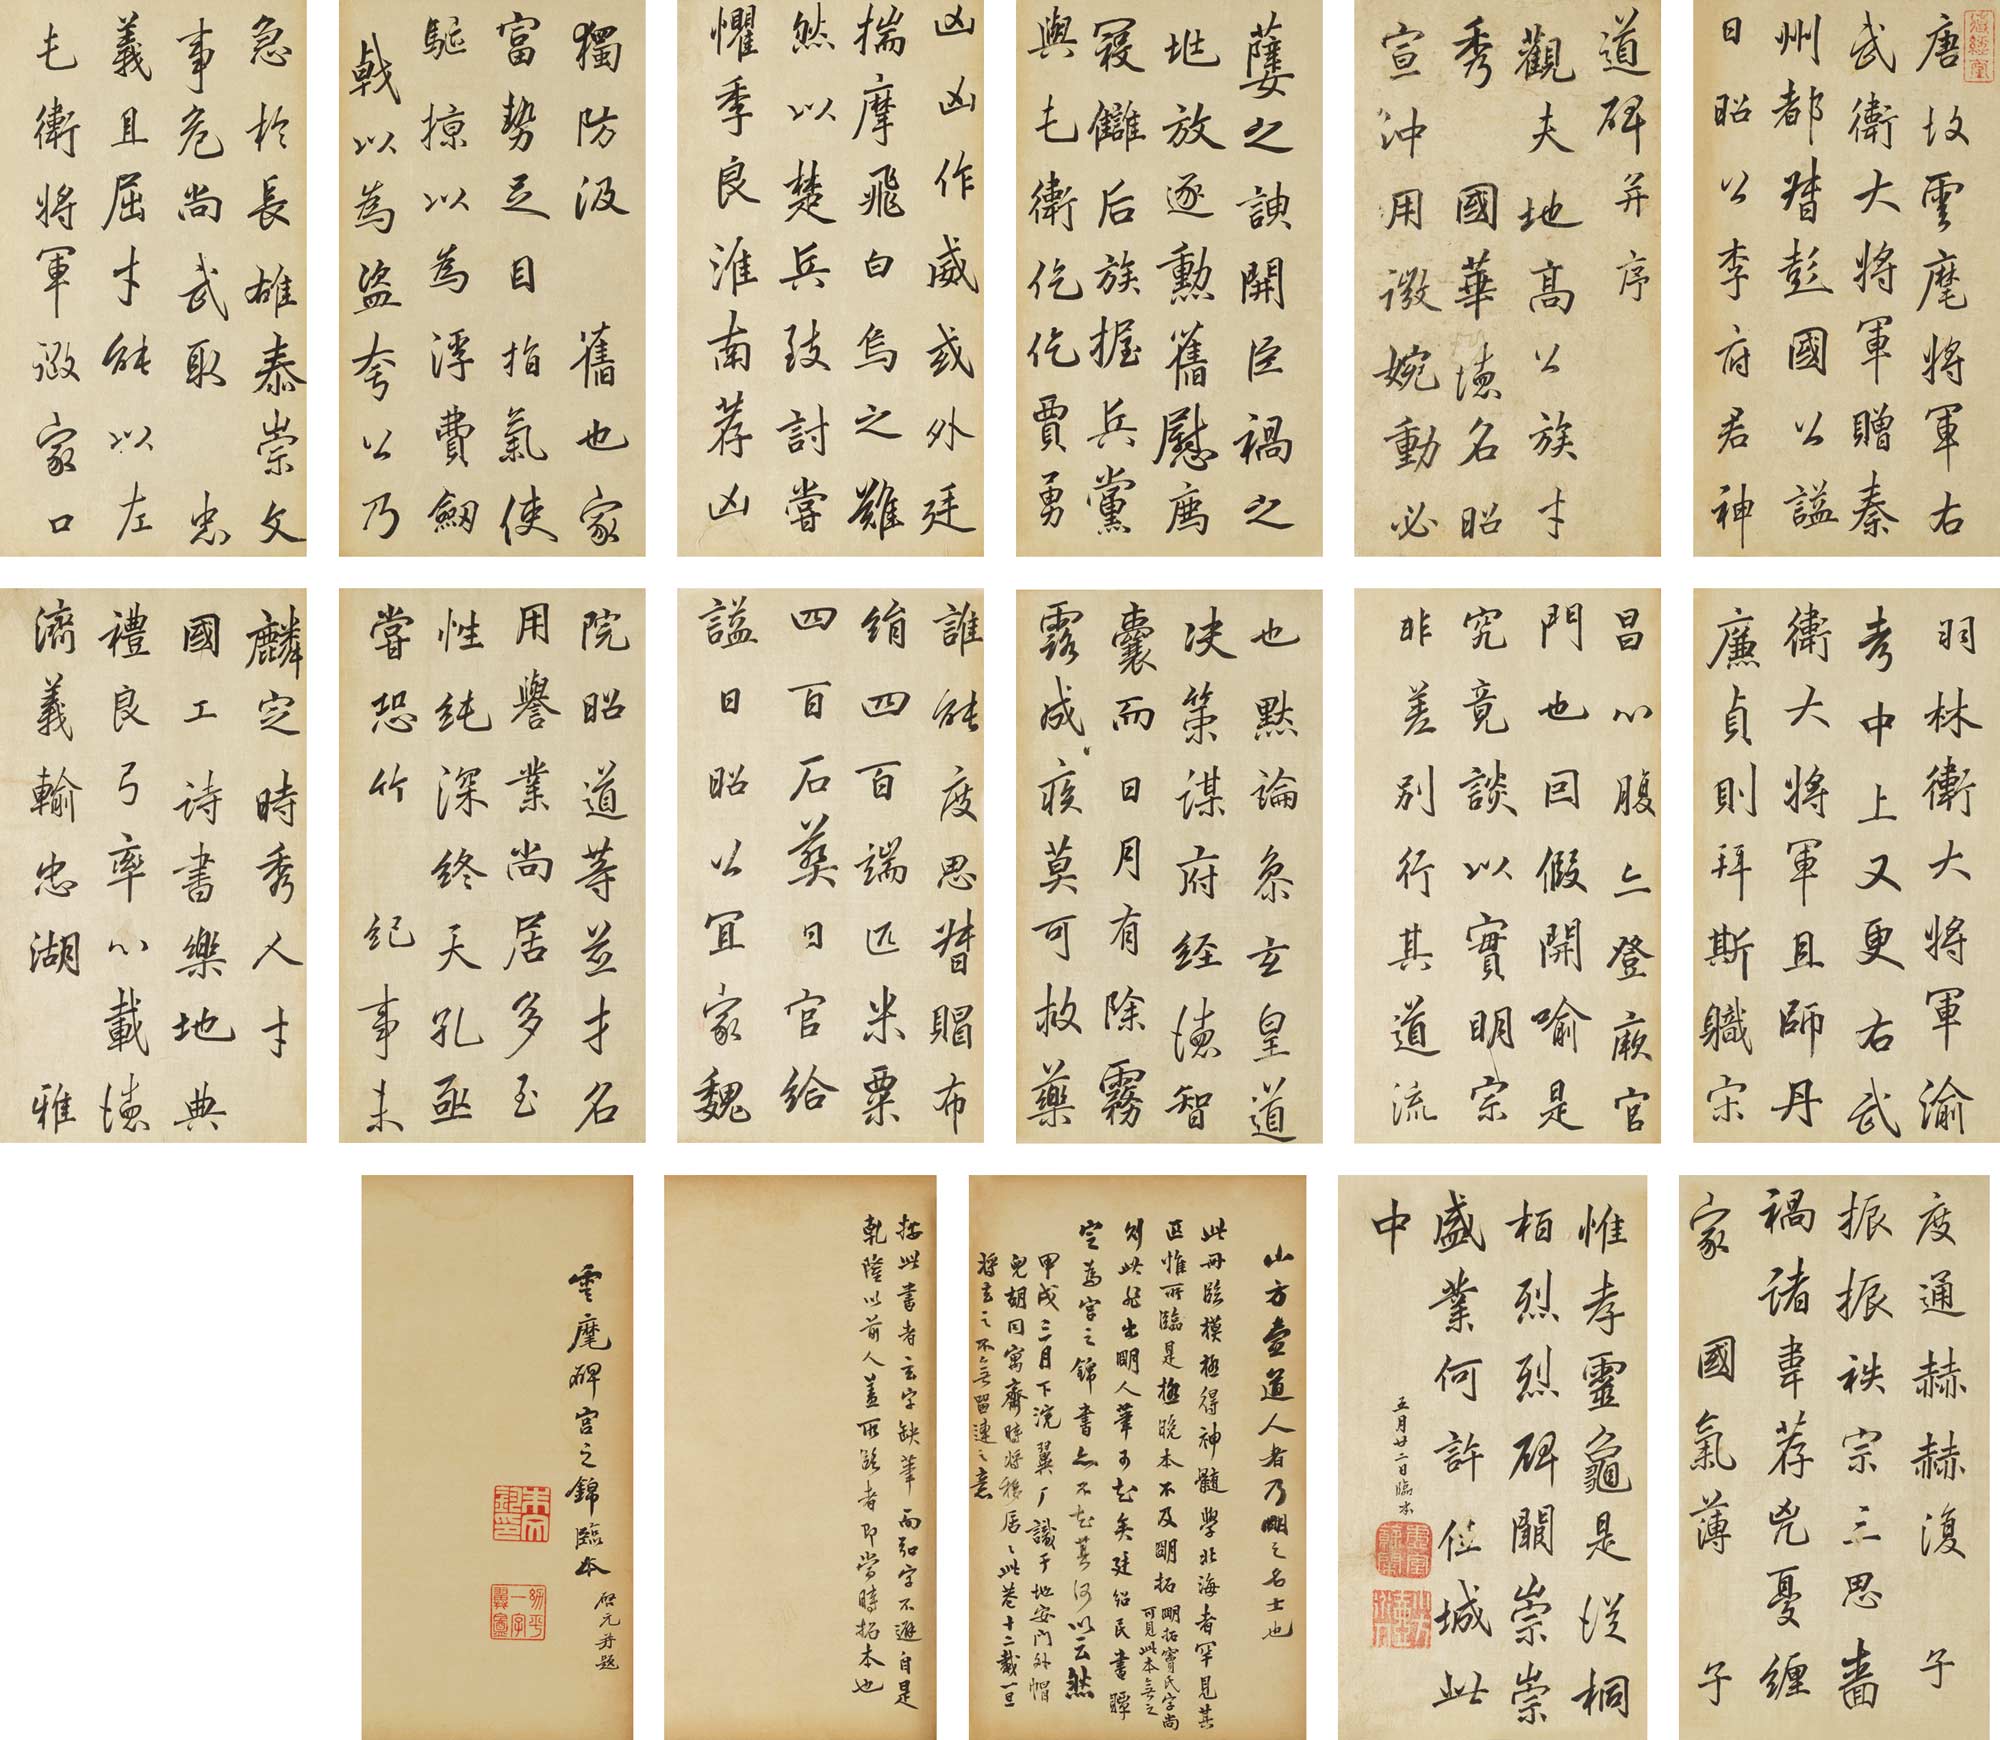 唐故雲麾將軍右
武衛大將軍贈秦
州都督彭國公謚
曰昭公李府君神
道碑并序
觀夫地高公族才
秀國華德名昭
宣沖用微婉動必
簍之諛開臣禍之
地放逐勳舊慰薦
寢讎后族握兵黨
與七衛仡仡賈勇
凶凶作威或外廷
揣摩飛白烏之難
然以楚兵致討嘗
懼季良淮南荐凶
獨防汲舊也家
富勢足目指氣使
驅掠以為浮費劒
戟以為盜夸公乃
急於長雄泰崇文
事危尚武取忠
義且屈才能以左
七衛將軍徵家口
羽林衛大將軍渝
考中上又更右武
衛大將軍且師丹
廉貞則拜斯職宋
昌心腹亦登厥官
門也回假開喻是
究竟談以實明宗
非差別行其道流
也默論參玄皇道
決策謀府經德智
囊而日月有除霧
露成疾莫可救藥
誰能度思督賵布
絹四百端匹米粟
四百石葬日官給
謚曰昭公宜家魏
院昭道等並才名
用譽業尚居多至
性純深終天孔亟
嘗恐竹紀事未
麟定時秀人才
國工詩書樂地典
禮良弓率心載德
濟義輸忠湖雅
度通赫赫復子
振振振袟宗三思嗇
禍諸韋荐兇憂纏
家國氣薄子
惟孝靈龜是從桐
栢烈烈碑闕崇崇
盛業何許位城此
中
五月廿二日臨本
山方壺道人者乃明之名士也
此冊臨摸極得神髓學北海者罕見其
匹惟所臨是極晚本不及明拓明拓竇氏字尚可見此本無之
則此非出明人筆可知矣廷紹民書瞫
定為宮之錦書亦不知其何以云然
甲戌三月下浣翼厂識于地安門外帽
兒胡同寓齋時將移居此巷十二載一旦
將去之不無留連之意
按此書者玄字缺筆而弘字不避自是
乾隆以前人蓋所臨者即當時拓本也
雲麾碑宮之錦臨本
啟元并題